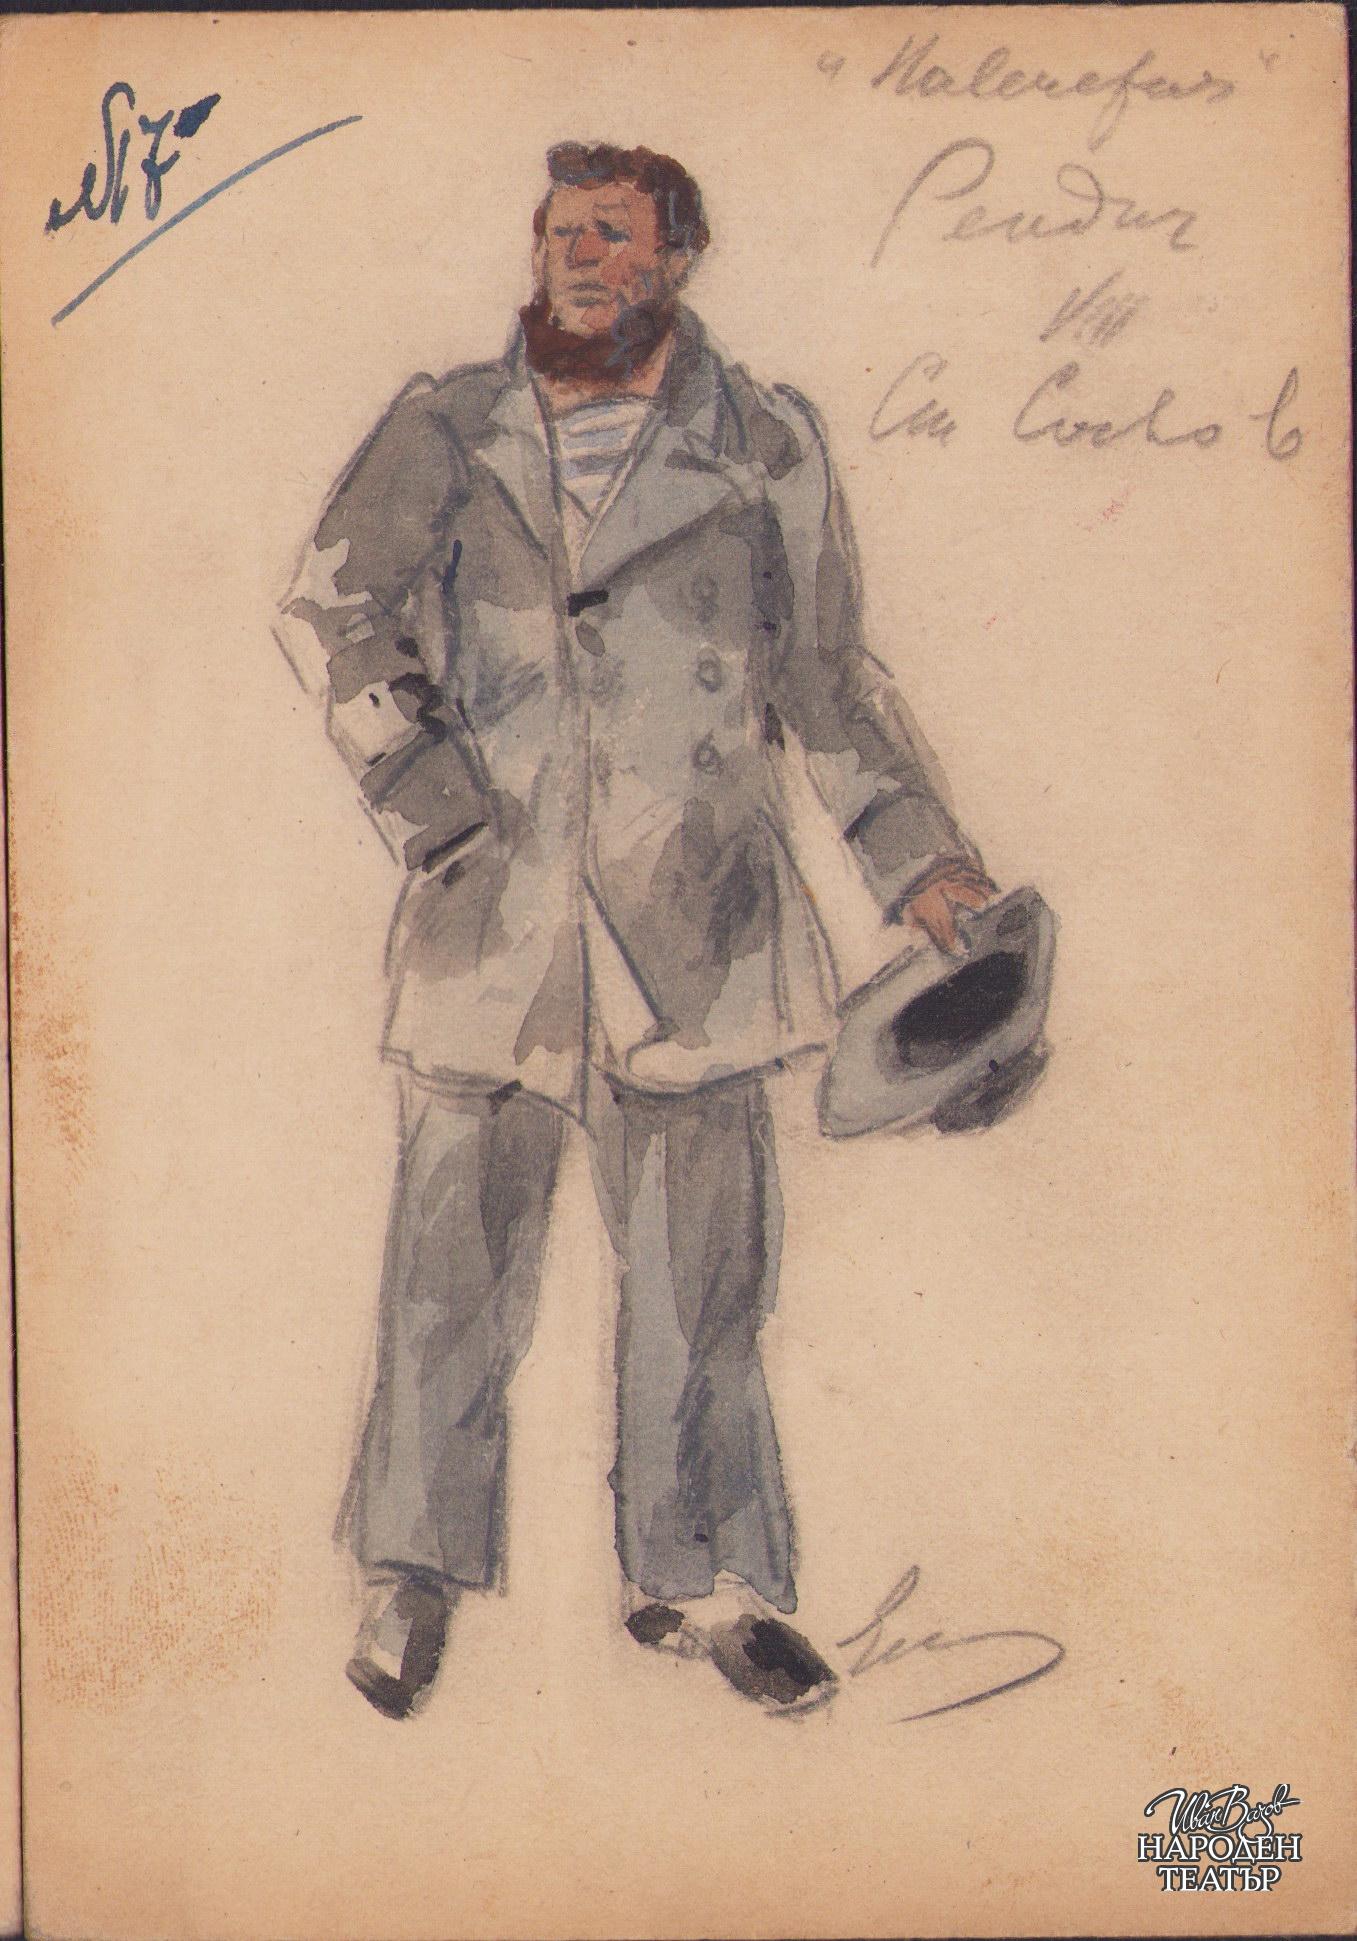 № 7
Рендич
VIII
Ст Сосков
Иван Вазов
НАРОДЕН
ТЕАТЪР